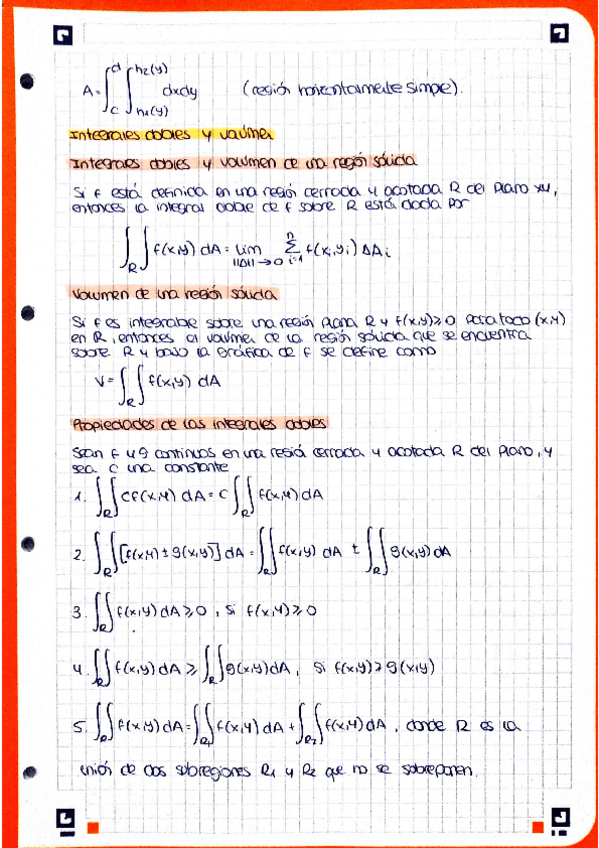 A = ∫_c^d ∫_{h₁(y)}^{h₂(y)} dxdy (región horizontalmente simple).
Integrales dobles y volúmen
Integrales dobles y volumen de una región sólida
Si f está definida en una región cerrada y acotada R del plano xy,
entonces la integral doble de f sobre R está dada por
∫∫_R f(x,y) dA = lim_{||Δ||→0} Σ_{i=1}^{n} f(xᵢ,yᵢ) ΔAᵢ
Volumen de una región sólida
Si f es integrable sobre una región plana R y f(x,y) ≥ 0 para todo (x,y)
en R, entonces el volúmen de la región sólida que se encuentra
sobre R y bajo la gráfica de f se define como
V = ∫∫_R f(x,y) dA
Propiedades de las integrales dobles
Sean f y g continuas en una región cerrada y acotada R del plano, y
sea c una constante
1. ∫∫_R c f(x,y) dA = c ∫∫_R f(x,y) dA
2. ∫∫_R [f(x,y) ± g(x,y)] dA = ∫∫_R f(x,y) dA ± ∫∫_R g(x,y) dA
3. ∫∫_R f(x,y) dA ≥ 0, si f(x,y) ≥ 0
4. ∫∫_R f(x,y) dA ≥ ∫∫_R g(x,y) dA, si f(x,y) ≥ g(x,y)
5. ∫∫_R f(x,y) dA = ∫∫_{R₁} f(x,y) dA + ∫∫_{R₂} f(x,y) dA, donde R es la
unión de dos subregiones R₁ y R₂ que no se sobreponen.